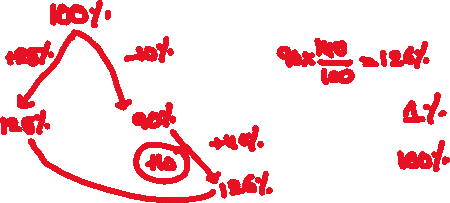 100%
+25% -10%
125% 90%
+40%
+40
126%
90 × 140/100 = 126%
1%
100%